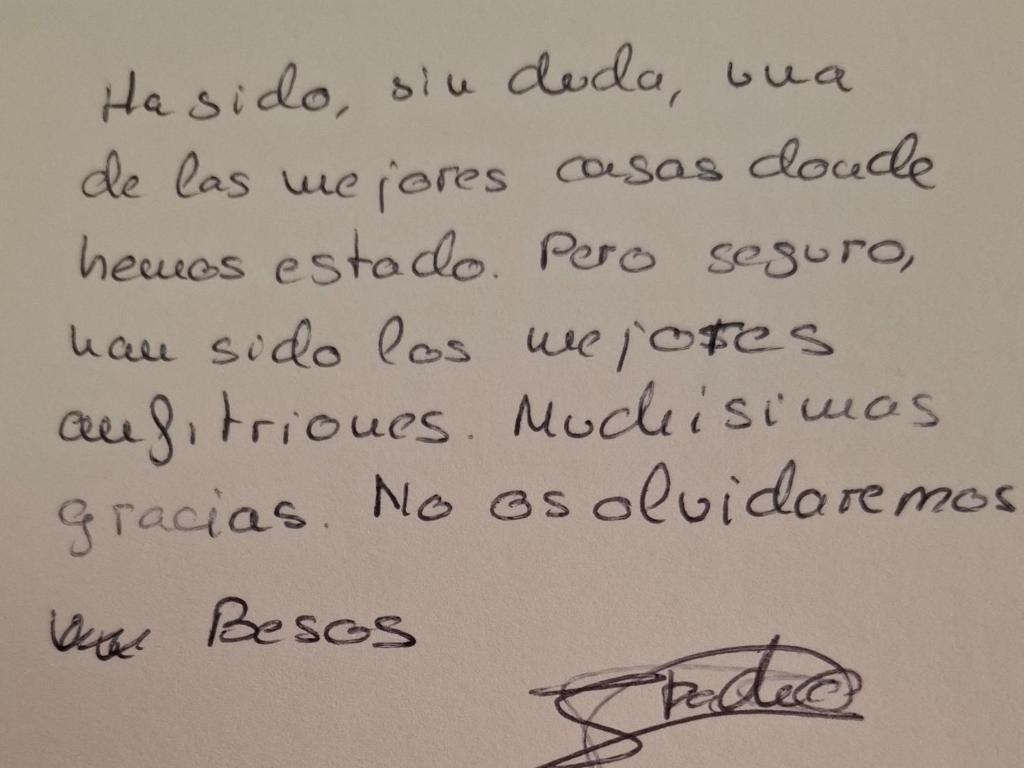 Ha sido, sin duda, una
de las mejores casas donde
hemos estado. Pero seguro,
han sido los mejores
anfitriones. Muchísimas
gracias. No os olvidaremos
Besos
Pedro